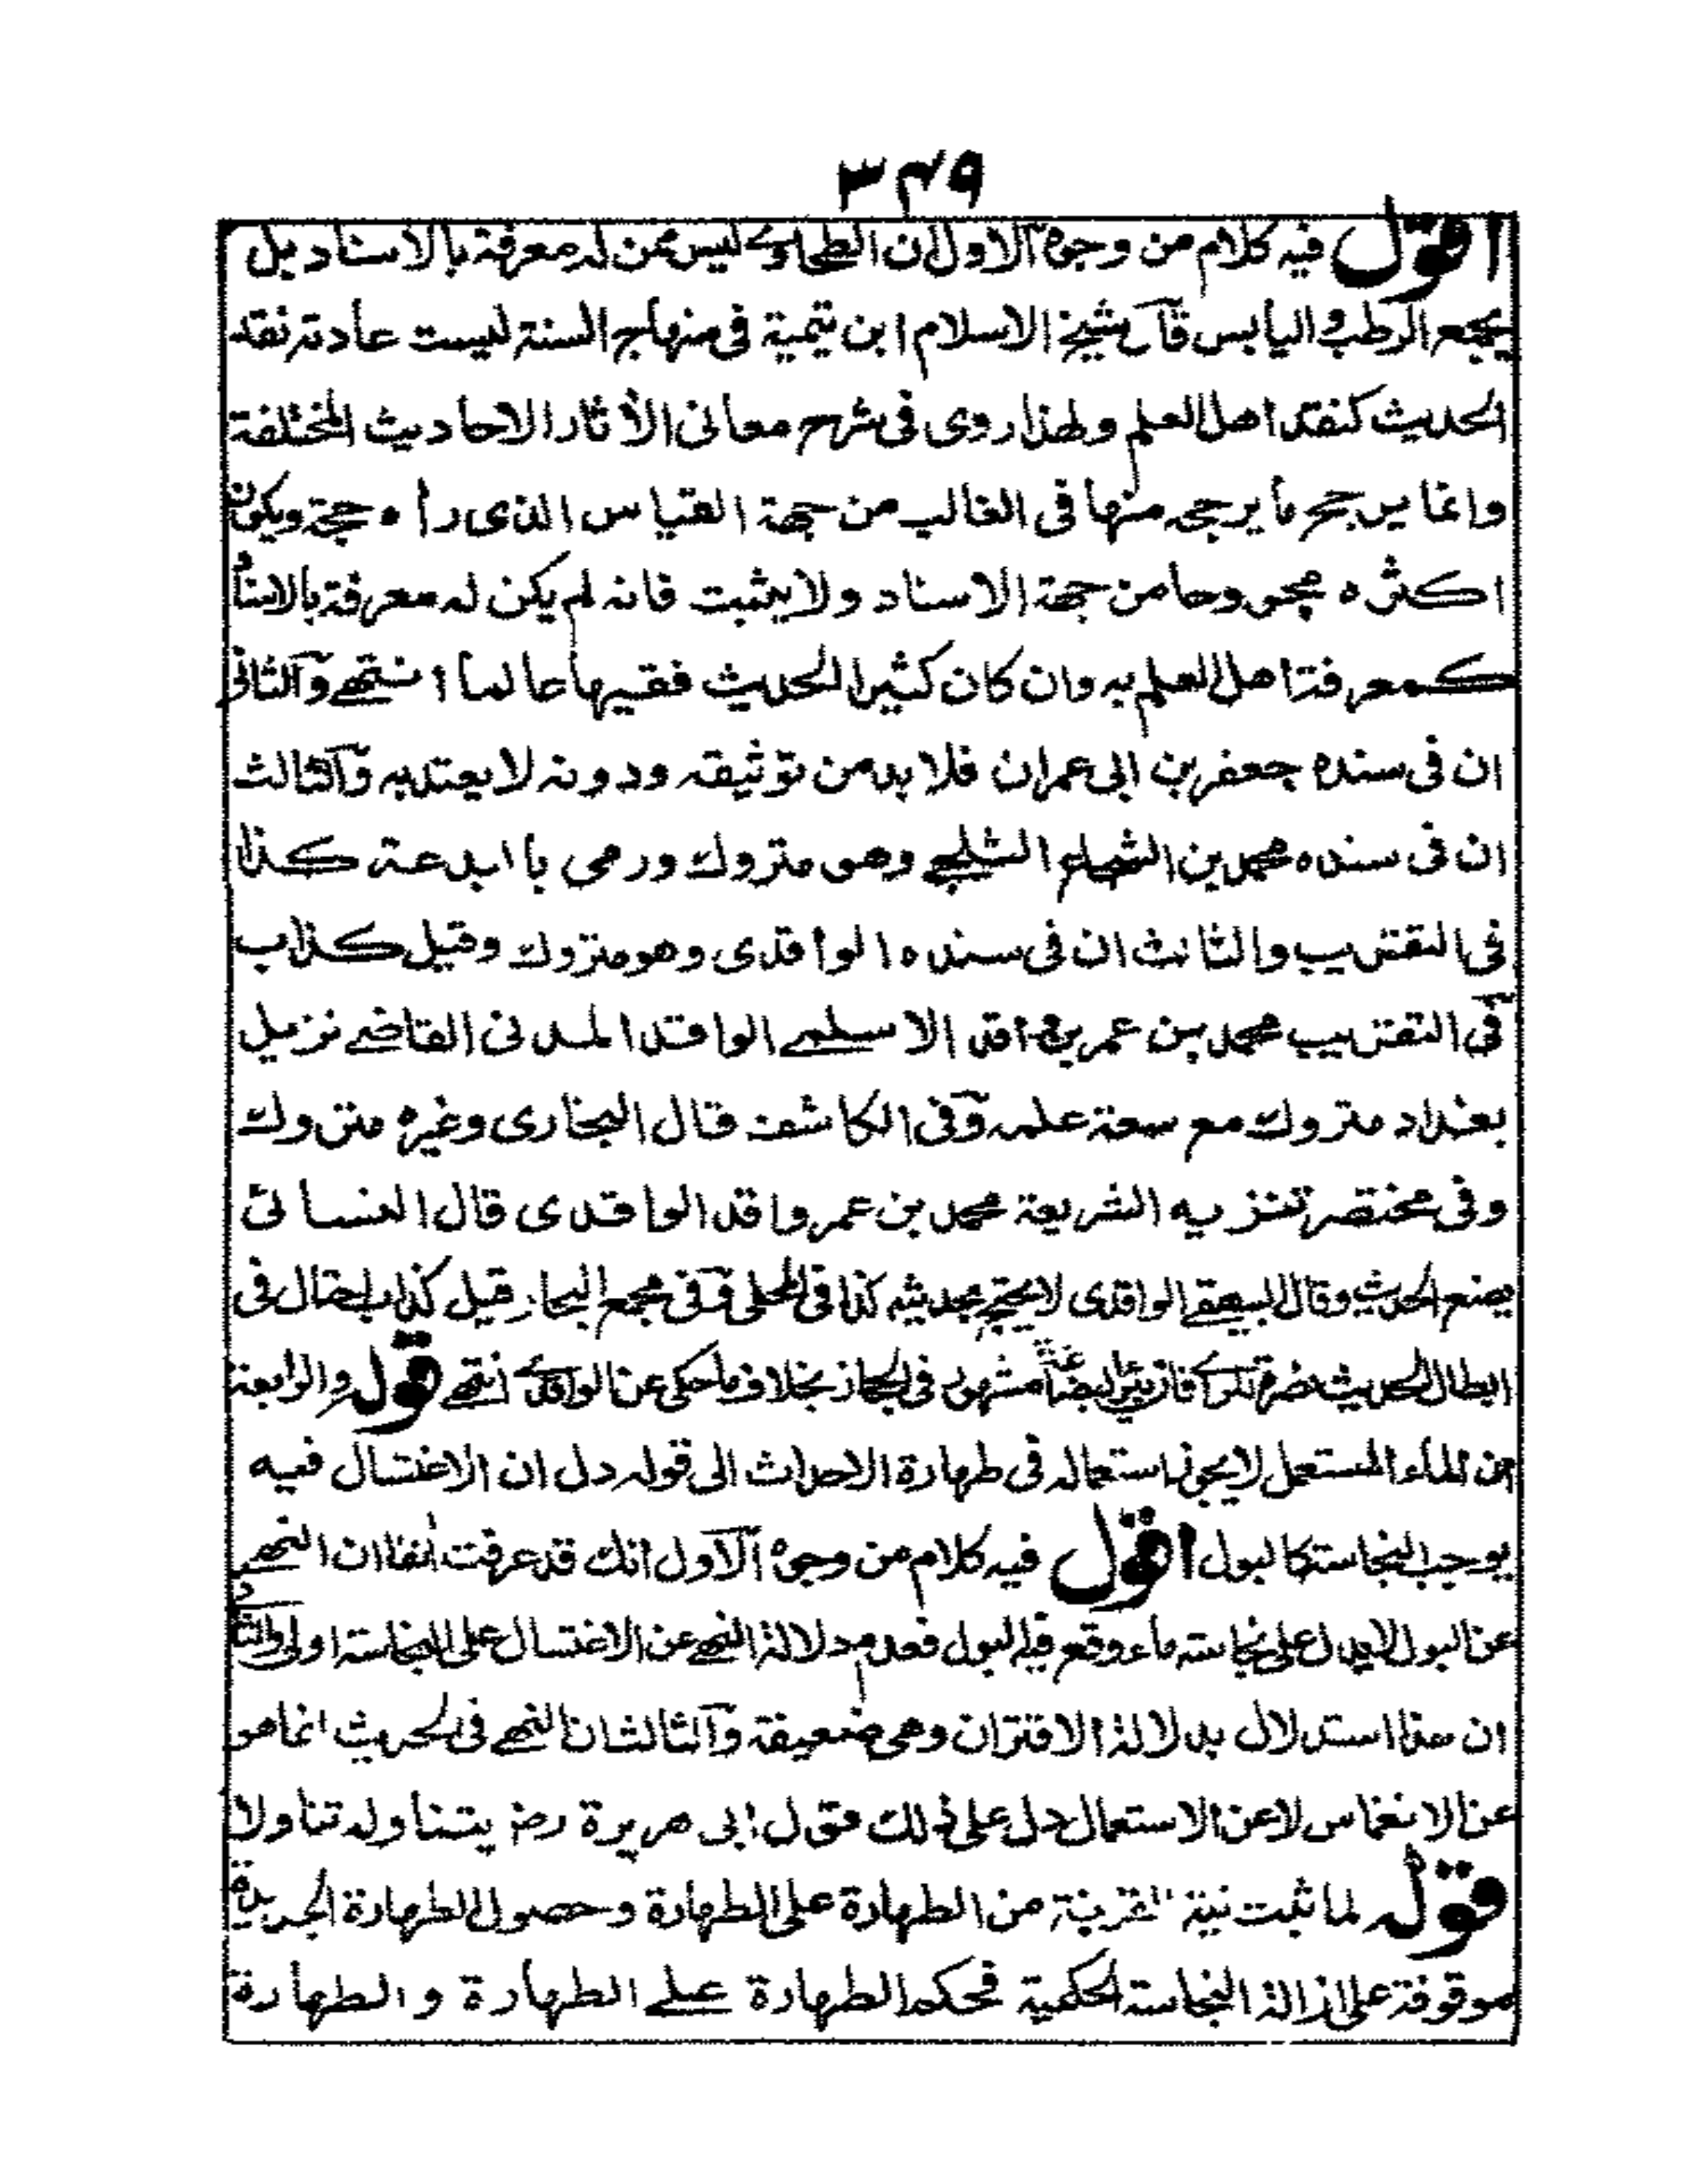 ٣٤٩
اقول فيه كلام من وجوه الاول ان الطحاوي ليس ممن له معرفة بالاسناد بل
يجمع الرطب واليابس قال شيخ الاسلام ابن تيمية فى منهاج السنة ليست عادته نقد
الحديث كنقد اهل العلم ولهذا روى فى شرح معانى الأثار الاحاديث المختلفة
وانما يرجح ما يرجحه منها فى الغالب من جهة القياس الذى رأه حجة ويكون
اكثره مجروحا من جهة الاسناد ولا يثبت فانه لم يكن له معرفة بالاسناد
كمعرفة اهل العلم به وان كان كثير الحديث فقيها عالما انتهے والثانى
ان فى سنده جعفر بن ابى عمران فلا بد من توثيقه ودونه لا يعتد به والثالث
ان فى سنده محمد بن الشجاع الثلجے وهو متروك ورمى باالبدعة كذا
فى التقريب والثالث ان فى سنده الواقدى وهو متروك وقيل كذاب
فى التقريب محمد بن عمر بن واقد الاسلمے الواقد المدنى القاضے نزيل
بغداد متروك مع سعة علمه وفى الكاشف قال البخارى وغيره متروك
وفى مختصر تنزيه الشريعة محمد بن عمر واقد الواقدى قال النسائى
يضع الحديث وقال البيهقے الواقدى لا يحتج بحديثه كذا فى المحلى وفى مجمع البحار قيل كذاب احتال فى
ابطال الحديث نصرة للراى فان بئر بضاعة مشهور فى الحجاز بخلاف ما حكى عن الواقدى انتهے قوله والرابعة
من الماء المستعمل لا يجوز استعماله فى طهارة الاحداث الى قوله دل ان الاغتسال فيه
يوجب النجاسة كالبول اقول فيه كلام من وجوه الاول انك قد عرفت انفا ان النهے
عن البول لا يدل على نجاسة ماء وقع فيه البول فعدم دلالة النهے عن الاغتسال على النجاسة اولى والثانى
ان هذا استدلال بدلالة الاقتران وهى ضعيفة والثالث ان النهے فى الحديث انما هو
عن الانغماس لا عن الاستعمال دل على ذلك قول ابى هريرة رض يتناوله تناولا
قوله لما ثبت نية القربة من الطهارة على الطهارة وحصول الطهارة الجديدة
موقوفة على ازالة النجاسة الحكمية فحكم الطهارة علے الطهارة والطهارة